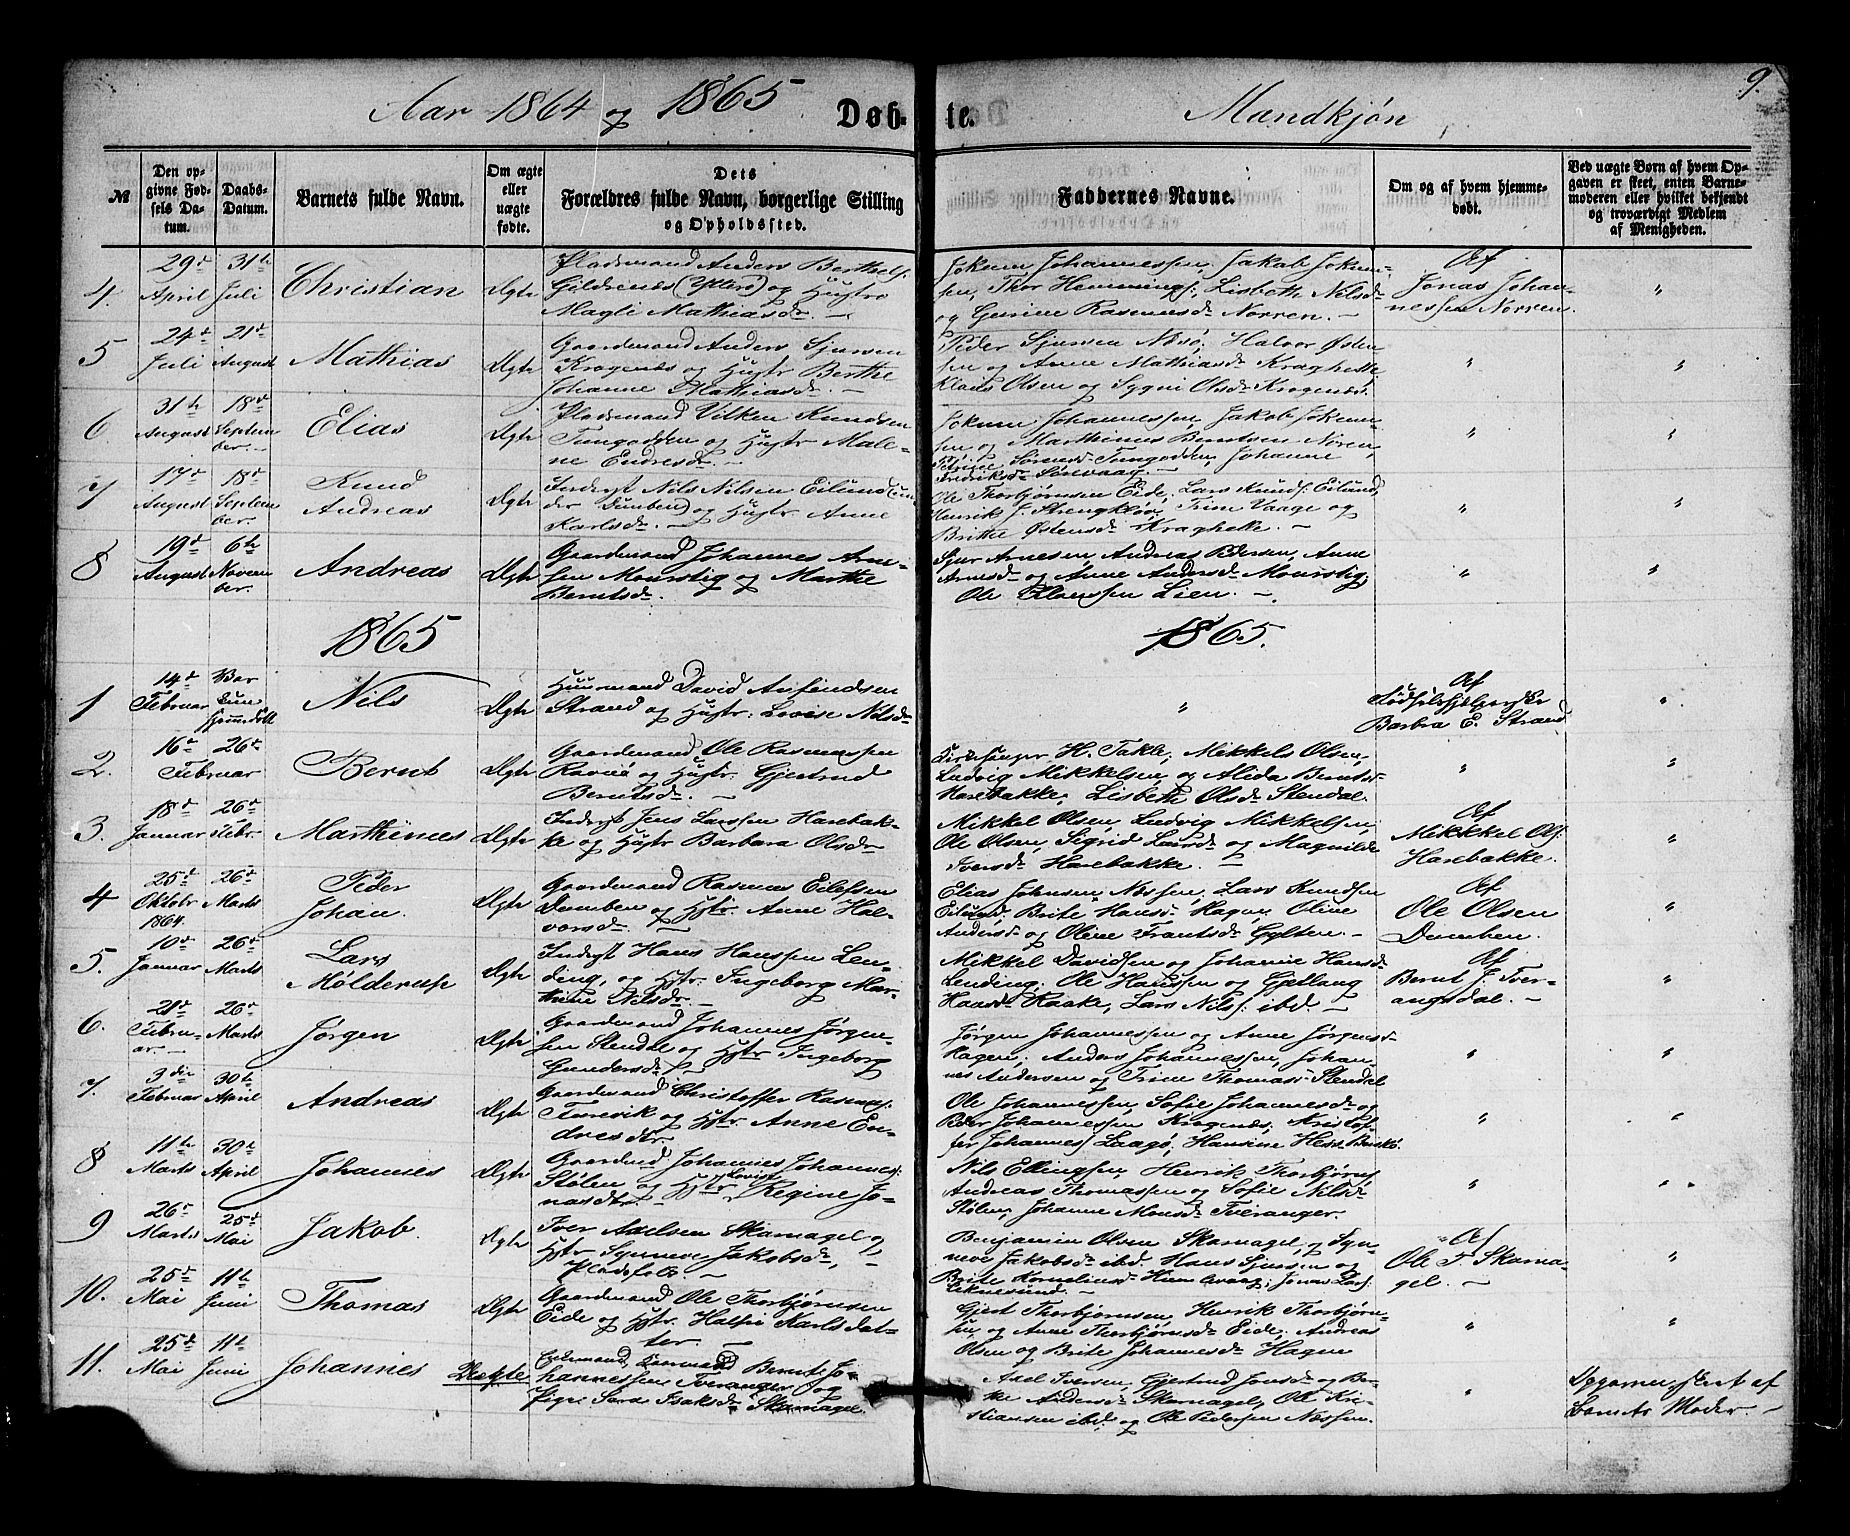 Aar 1864 og 1865 Døb-te. Mandkjøn 9.
№ Den opgivne Fødsels Datum. Daabs-Datum. Barnets fulde Navn. Om ægte eller uægte fødte. Dets Forældres fulde Navn, borgerlige Stilling og Opholdssted. Faddernes Navne. Om og af hvem hjemmedøbt. Ved uægte Børn af hvem Opgaven er skeet, enten Barnemoderen eller hvilket bekjendt og troværdigt Medlem af Menigheden.
4. 29d April 31te Juli Christian Ægte
Pladsmand Anders Berthels.
Gildrenæs (Yttrø) og Hustro
Magli Mathiasdr. —
Jokum Johannessen, Jakob Jokum-
sen, Thor Hemmings., Lisbeth Nilsdr
og Gurine Rasmusdr Norren. —
Af
Jonas Johan-
nessen Norren.
"
5 24d Juli 21d August Mathias Ægte
Gaardmand Anders Sjursen
Krogenæs og Hustr Berthe
Johanne Mathiasdr —
Peder Sjursen Næsø, Halvor Østen-
sen og Anne Mathiasdr Kraghelle
Klaus Olsen og Sygni Olsdr Krogenæs.
" "
6 31te August 18de September. Elias Ægte
Pladsmand Vilken Knudsen
Tungodden og Hustr Male-
ne Endresdr. —
Jokum Johannessen, Jakob Jokum-
sen og Marthinus Berntsen Noren,
Petrine Sørensdr Tungodden, Johanne
Fredriksdr Sørevaag. —
" "
7 17d August 18de September. Knud Andreas Ægte
Inderst Nils Nilsen Eilund (un-
der Dumben) og Hustr Anne
Karlsdr. —
Ole Thorbjørnsen Eide, Lars Knuds. Eilund,
Henrik J. Strengkløv, Trine Vaage og
Brithe Østensdr Kraghelle. —
" "
8 19d August 6te November. Andreas Ægte
Gaardmand Johannes Arne-
sen Mourstig og Marthe
Berntsdr.
Sjur Arnesen, Andreas Pedersen, Anne
Arnesdr og Anne Andersdr Mourstig,
Ole Ellensen Lien. —
" "
1865 1865.
1 14d Februar Bar Hjemmedøbt Nils Ægte
Huusmand David Arfindsen
Strand og Hustr: Lovise Nilsdr
"
Af
Fødselshjelperske
Barbra E. Strand
"
2. 16d 26d Februar Bernt Ægte
Gaardmand Ole Rasmussen
Ravnø og Hustr: Gjertrud
Berntsdr. —
Kirkesanger H. Takle, Mikkels Olsen,
Ludvig Mikkelsen og Alida Berntsdr
Harebakke, Lisbeth Olsdr Stendal.
" "
3. 18d Januar 26d Febr. Marthinus Ægte
Inderst Jens Larssen Harebak-
ke og Hustr Barbara Olsdr
Mikkel Olsen, Ludvig Mikkelsen,
Ole Olsen, Sigrid Larsdr og Magnilde
Iversdr Harebakke.
Af
Mikkel Ols.
Harebakke.
"
4 25d Oktobr 1864. 26d Marts Peder Johan. Ægte
Gaardmand Rasmus Eilefsen
Dumben og Hstr. Anne Hal-
vorsdr. —
Elias Johnsen Næssen, Lars Knudsen
Eilund, Brite Hansdr Hagen, Oline
Andersdr og Oline Frantsdr Gylten. —
Af
Ole Olsen
Dumben.
"
5. 10d Januar 26d Marts Lars Mølderup Ægte
Inderst Hans Hanssen Len-
ding, og Hstr Ingeborg Mar-
thine Nilsdr —
Mikkel Davidsen og Johanne Hansdr
Lending, Ole Hanssen og Gjetlaug
Hansdr Raake, Lars Nils. ibd. —
Af
Bernt J. Tver-
angsdal. —
"
6. 21d Februar. — 26d Marts Jørgen Ægte
Gaardmand Johannes Jørgen-
sen Stendal og Hstr Ingeborg
Gundersdr —
Jørgen Johannessen og Anne Jørgensdr
Hagen, Anders Johannessen, Johan-
nes Andersen og Trine Thomasdr Stendal
" "
7. 3die Februar 30te April Andreas Ægte
Gaardmand Christoffer Rasmus.
Torevik og Hstr. Anne En-
dresdtr.
Ole Johannessen, Sofie Johannesdr og
Peder Johannessen Krogenæs, Kristof-
fer Johannes. Laagø, Hansine Hess Buskø.
" "
8 11te Marts 30te April Johannes Ægte
Gaardmd Johannes Johannes.
Stølen og Hstr Lovise Regine Jo-
nasdtr. —
Nils Ellingsen, Henrik Thorbjørns.
Andreas Thomassen og Sofie Nilsdr
Stølen, Johanne Monsdr Tveranger.
" "
9 26d Marts 25d Mai Jakob. Ægte
Iver Axelsen Skarnagel og
Hstr Synneve Jakobsdr,
Pladsfolk. —
Benjamin Olsen Skarnagel, og Syn-
neve Jakobsdr ibd. Hans Sjursen og
Brite Kornelinsdr Humlevaag, Jonas Lars.
Leknesund. —
Af
Ole T. Skarna-
gel. —
"
10. 25d Mai 11te Juni Thomas Ægte
Gaardmand Ole Thorbjørnsen
Eide og Hstr. Karlsdat-
ter. —
Gjert Thorbjørnsen, Henrik Thorbjørn-
sen, og Anne Thorbjørnsdr Eide, Andreas
Olsen og Brite Johannesdr Hagen
" "
11. 25d Mai 11te Juni Johannes Uægte
Bernt Jo-
hannessen Tveranger og
Pige Sara Isaksdr Skarnagel.
Axel Iversen, Gjertrud Jonsdr og Be-
Andersdr Skarnagel, Ole Kri-
stiansen ibd, og Ole Pedersen Næssen.
"
Opgaven skeet af
Barnets Moder. —